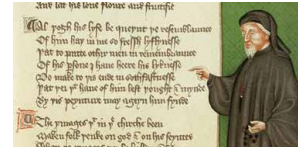 And let his loue floure and fructifie
Al þogh his lyfe be queynt þe resemblaunce
Of him haþ in me so fressh lyflynesse
Þat to putte othir men in remembraunce
Of his persone I haue heere his lyknesse
Do make to þis ende in sothfastnesse
Þat þei þt haue of him lest þought & mynde
By þis peynture may ageyn him fynde
The ymages þt in þe chirche been
Maken folk þenke on god & on his seyntes